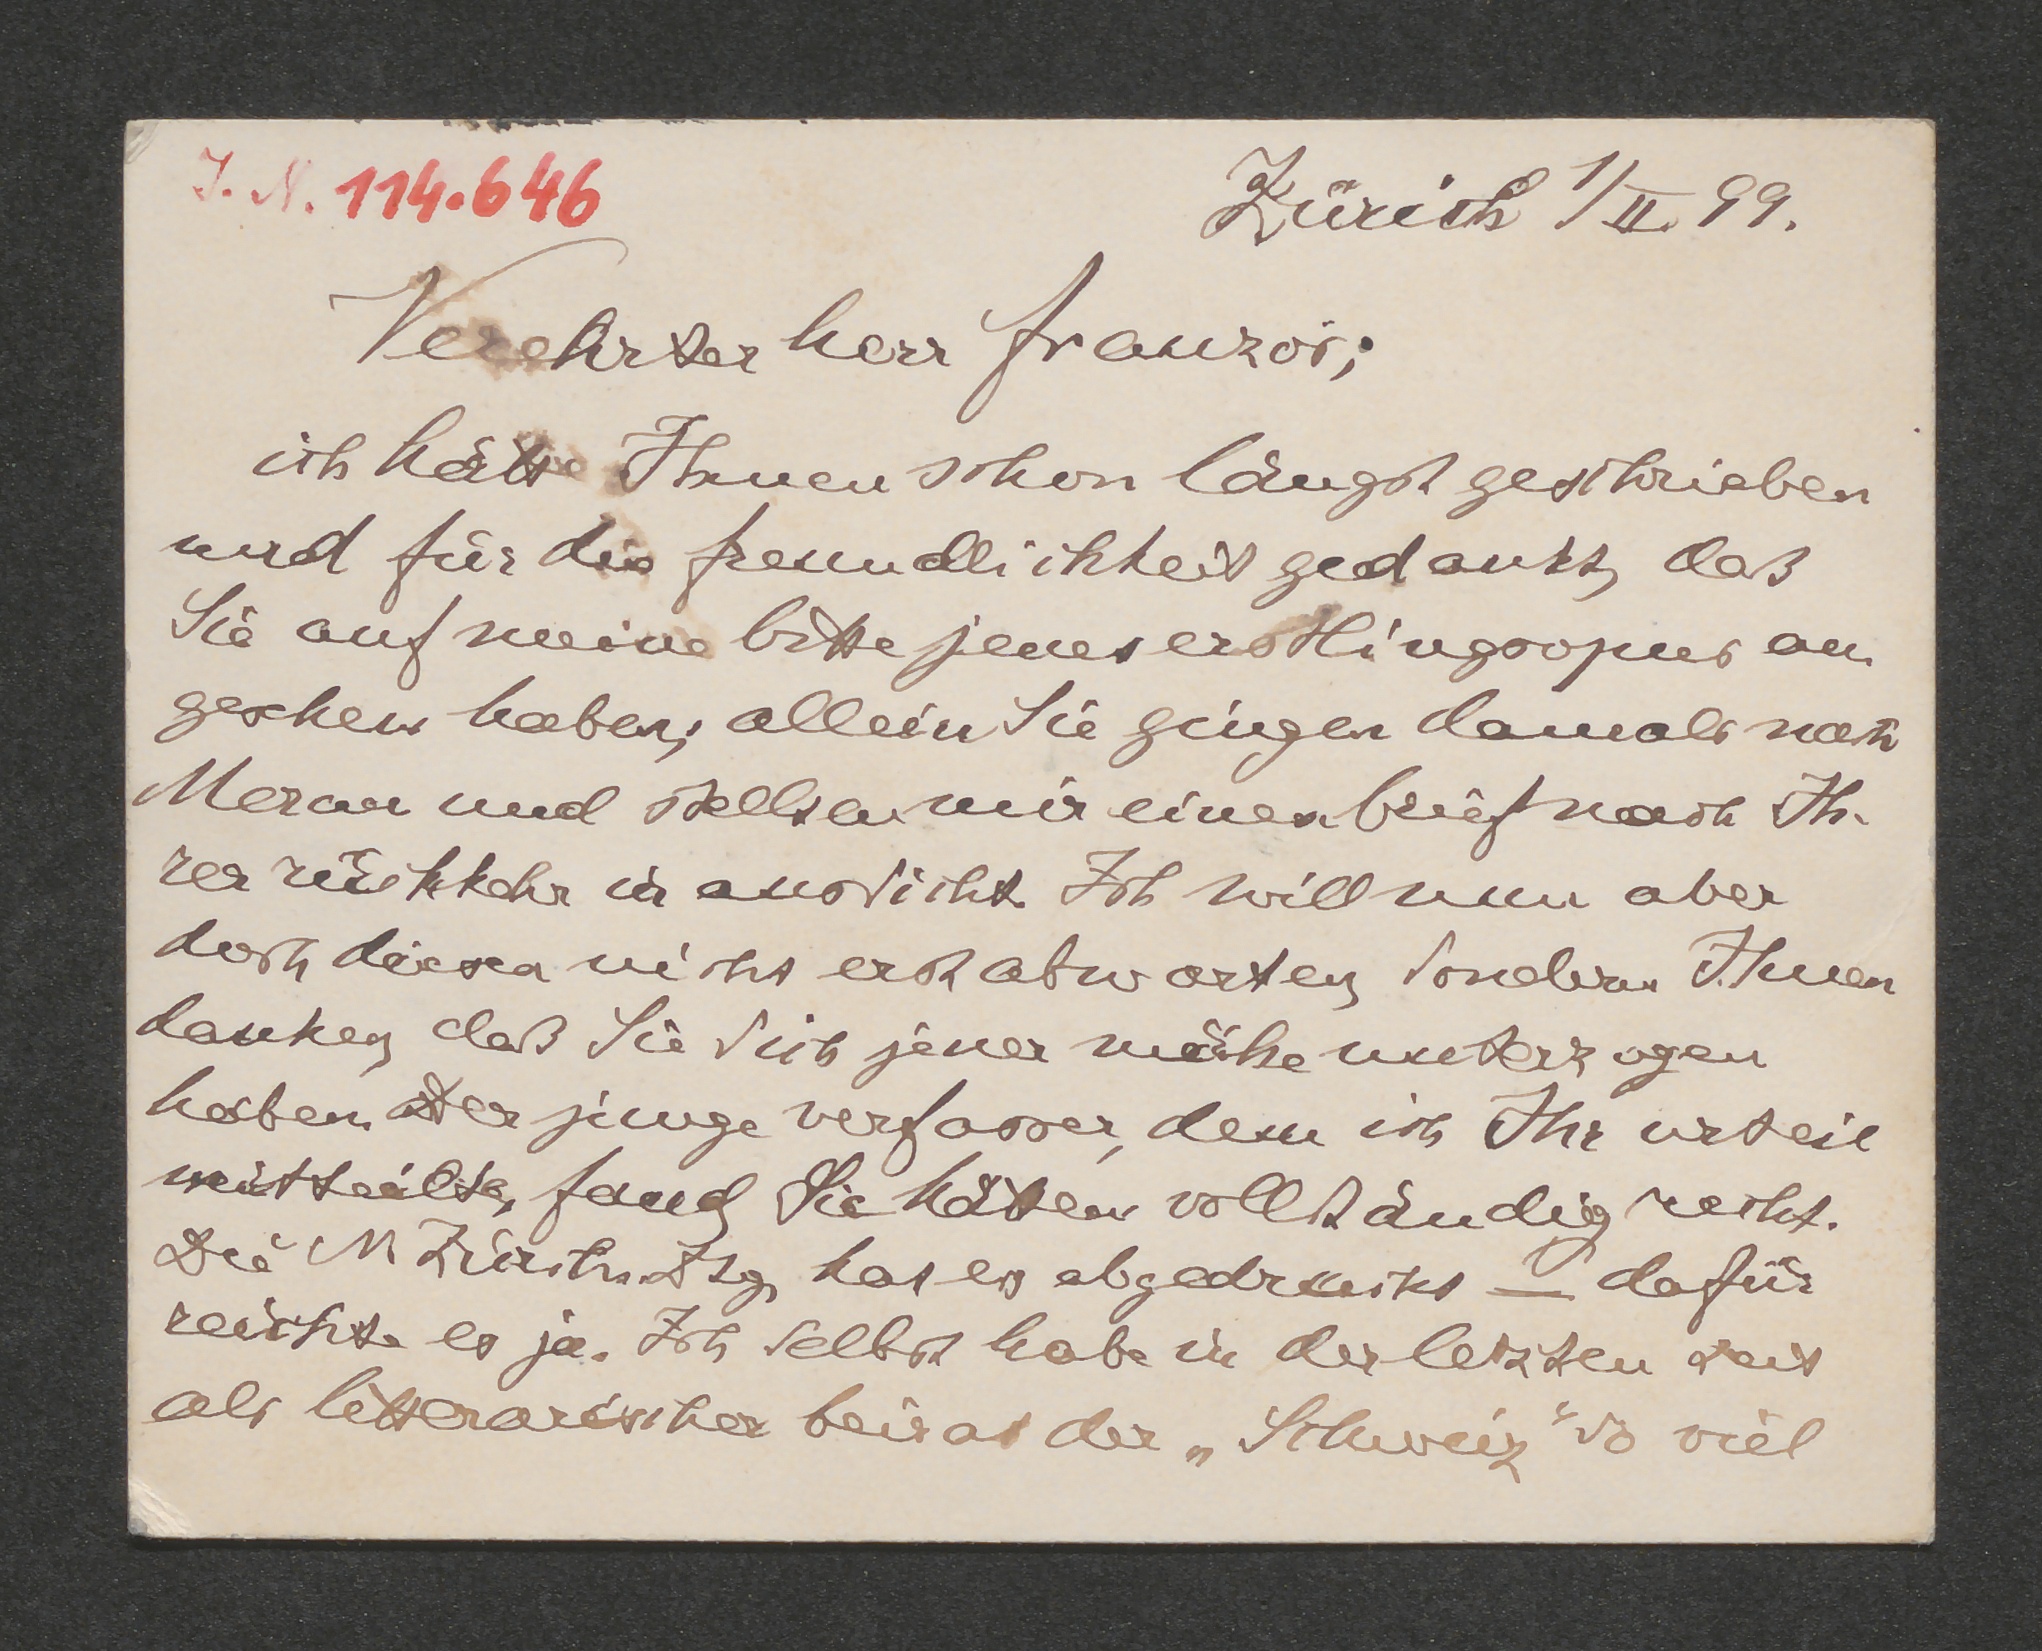 J. N. 114.646
Zürich 1/II. 99.
Verehrter herr Franzos;
ich hätte Ihnen schon längst geschrieben
und für die freundlichkeit gedankt, daß
Sie auf meine bitte jenes erstlingsopus an
gesehen haben; allein Sie gingen damals nach
Meran und stellten mir einen brief nach Ih-
rer rückkehr in aussicht. Ich will nun aber
doch diesen nicht erst abwarten, sondern Ihnen
danken, daß Sie sich jener mühe unterzogen
haben. Der junge verfasser, dem ich Ihr urteil
mitteilte, fand, Sie hätten vollständig recht.
Die N Zürch. Ztg. hat es abgedruckt — dafür
reichte es ja. Ich selbst habe in der letzten zeit
als litterarischer beirat der „Schweiz" so viel